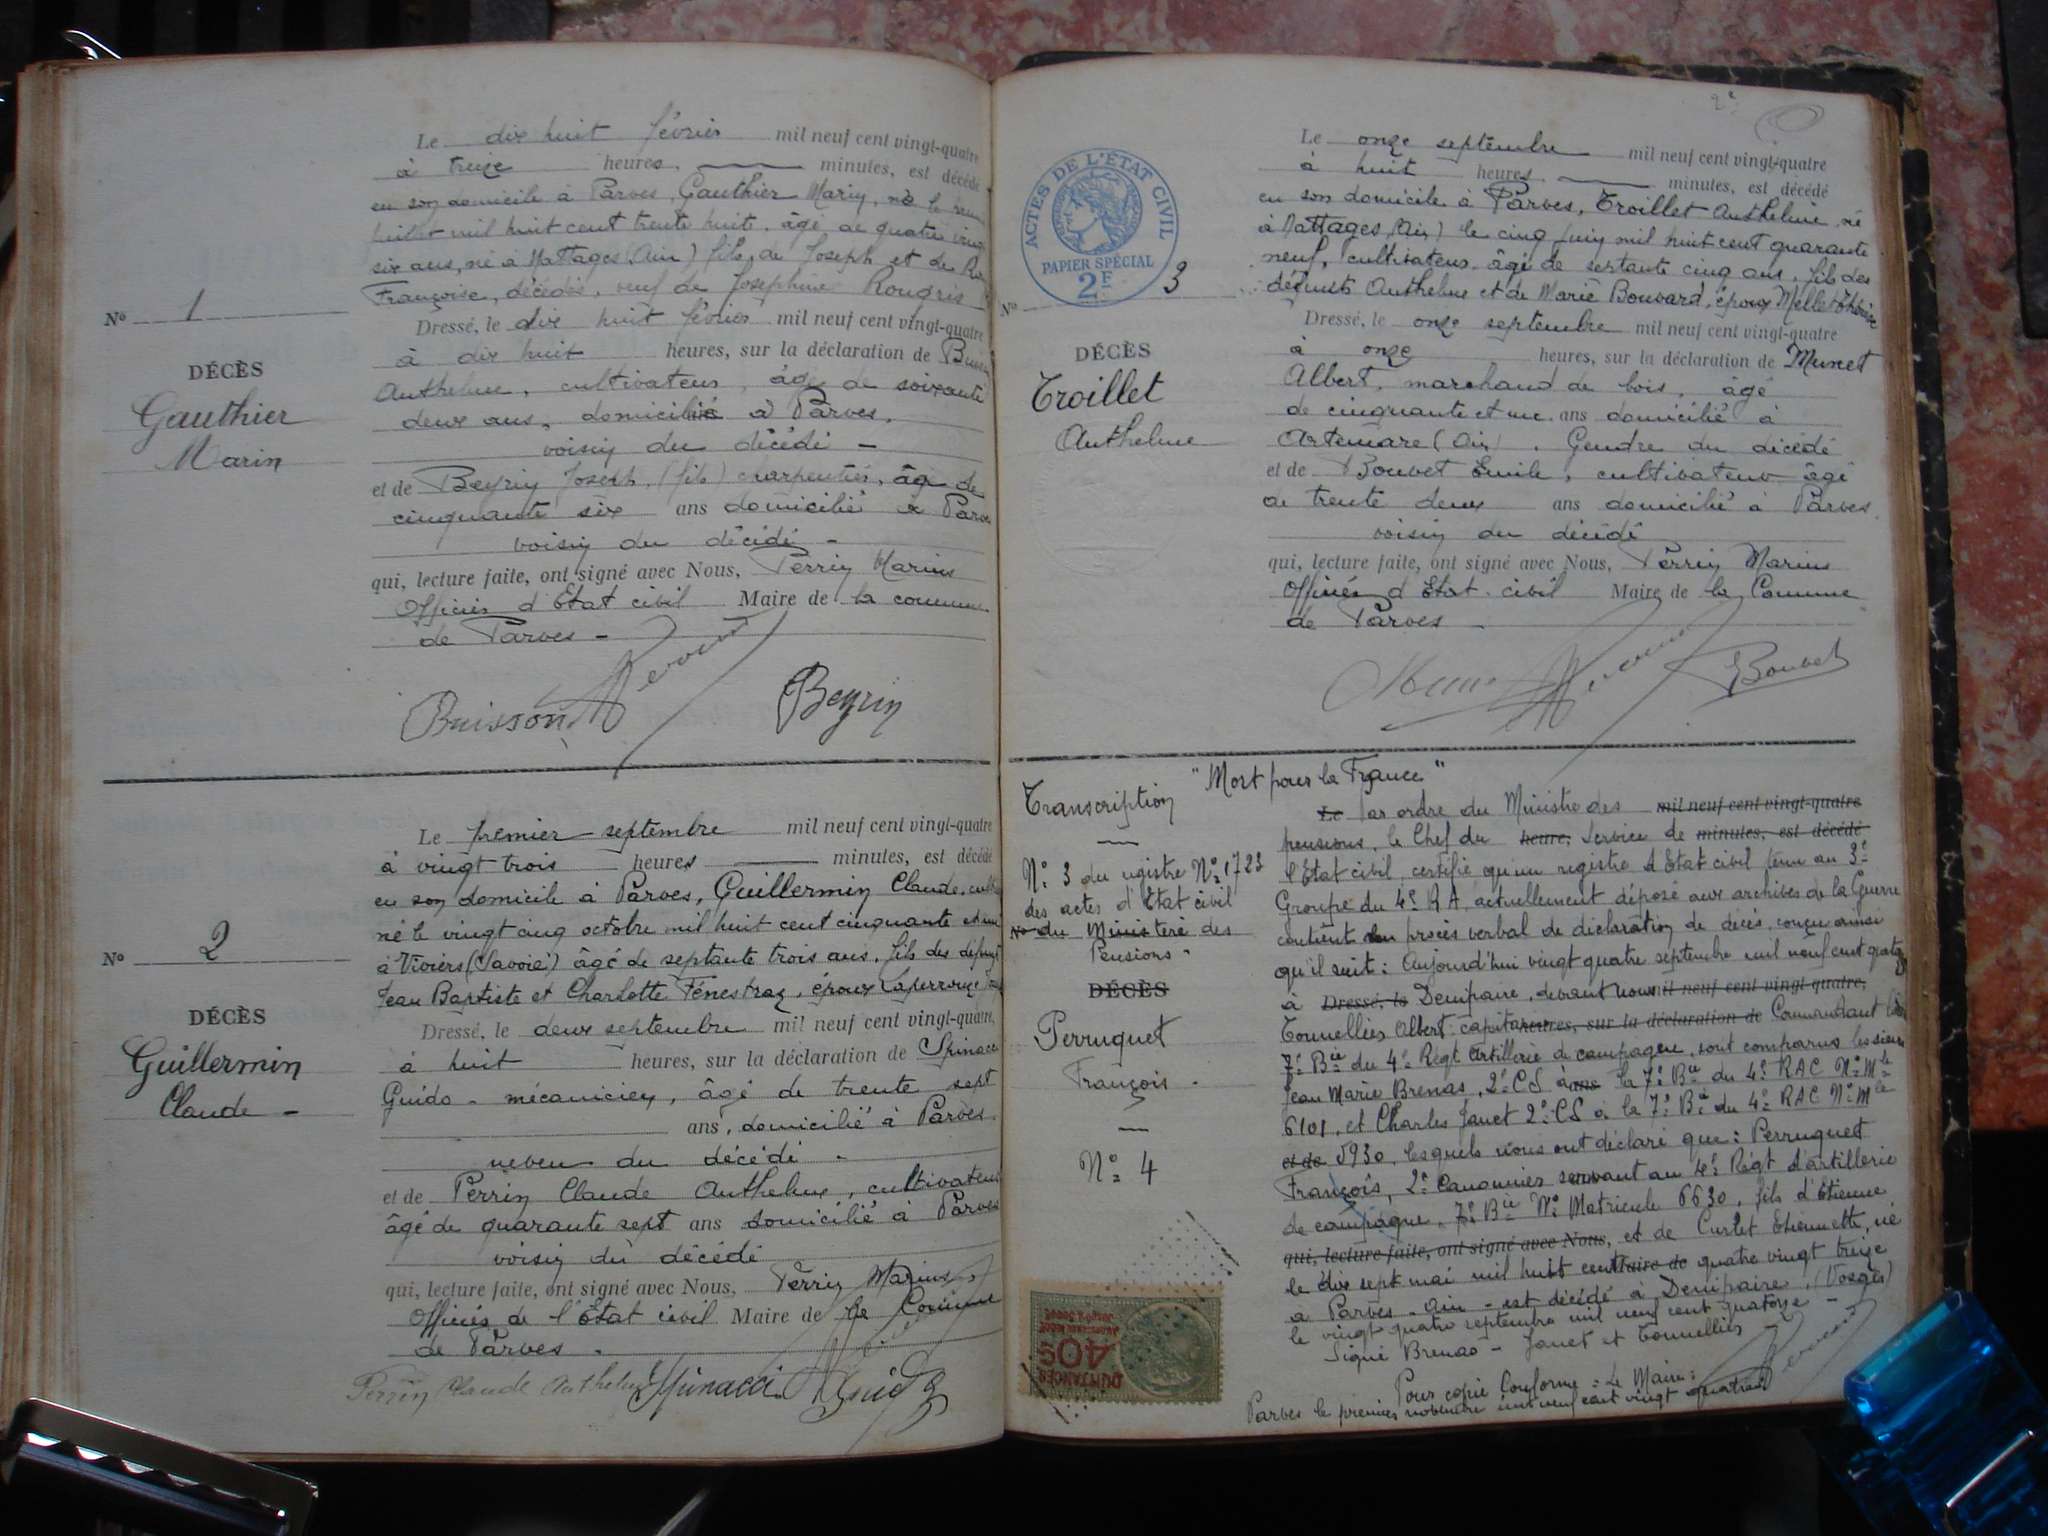 Le dix huit février mil neuf cent vingt-quatre
à treize heures minutes, est décédé
en son domicile à Parves, Gauthier Marin, né le
juillet mil huit cent trente huit. âgé de quatre vingt
six ans, né à Nattages (Ain) fils de Joseph et de
Françoise, décédés, veuf de Josephine Rougris
Nº 1
Dressé, le dix huit février mil neuf cent vingt-quatre
à dix huit heures, sur la déclaration de
DÉCÈS
Gauthier
Marin
Anthelme, cultivateur, âgé de soixante
deux ans, domicilié à Parves,
voisin du décédé -
et de Beyrin Joseph, (fils) charpentier, âgé de
cinquante six ans domicilié à Parves
voisin du décédé -
qui, lecture faite, ont signé avec Nous, Perrin Marius
Officier d'Etat civil Maire de la commune
de Parves -
Buisson Perrin Beyrin
Le premier septembre mil neuf cent vingt-quatre
à vingt trois heures minutes, est décédé
en son domicile à Parves, Guillermin Claude, cult
né le vingt cinq octobre mil huit cent cinquante et un
à Viviers (Savoie) âgé de septante trois ans, fils des défunts
Jean Baptiste et Charlotte Fénestraz, époux Laperrouze
Nº 2
DÉCÈS
Guillermin
Claude -
Dressé, le deux septembre mil neuf cent vingt-quatre,
à huit heures, sur la déclaration de Spinacci
Guido - mécanicien, âgé de trente sept
ans, domicilié à Parves.
neveu du décédé -
et de Perrin Claude Anthelme, cultivateur
âgé de quarante sept ans domicilié à Parves
voisin du décédé
qui, lecture faite, ont signé avec Nous, Perrin Marius,
Officier de l'Etat civil Maire de la Commune
de Parves -
Perrin Claude Anthelme Spinacci Guido
2e
ACTES DE L'ÉTAT CIVIL
PAPIER SPÉCIAL
2F
Nº 3
DÉCÈS
Troillet
Anthelme
Le onze septembre mil neuf cent vingt-quatre
à huit heures minutes, est décédé
en son domicile à Parves, Troillet Anthelme, né
à Nattages (Ain) le cinq juin mil huit cent quarante
neuf, cultivateur, âgé de septante cinq ans, fils des
défunts Anthelme et de Marie Bouvard, époux Mellet
Dressé, le onze septembre mil neuf cent vingt-quatre
à onze heures, sur la déclaration de Munet
Albert, marchand de bois, âgé
de cinquante et un ans domicilié à
Artemare (Ain). Gendre du décédé
et de Bouvet Emile, cultivateur âgé
de trente deux ans domicilié à Parves.
voisin du décédé
qui, lecture faite, ont signé avec Nous, Perrin Marius
Officier d'Etat civil Maire de la Commune
de Parves -
Munet Perrin Bouvet
Transcription
"Mort pour la France"
Nº 3 du registre Nº 1723
des actes d'Etat civil
Nº du Ministère des
Pensions
DÉCÈS
Perruquet
François -
Nº 4
Le Par ordre du Ministre des mil neuf cent vingt-quatre
pensions, le Chef du heure, Service de minutes, est décédé
l'Etat civil, certifie qu'un registre d'Etat civil tenu au 3e
Groupe du 4e RA, actuellement déposé aux archives de la Guerre
contient un procès verbal de déclaration de décès, conçu ainsi
qu'il suit: Aujourd'hui vingt quatre septembre mil neuf cent quatorze
à Dressé, le Denipaire, devant nous mil neuf cent vingt-quatre,
Tonnellier Albert capitaine heures, sur la déclaration de Commandant la
7e Bie du 4e Régt Artillerie de campagne, sont comparus les sieurs
Jean Marie Brenas, 2e CS à ans la 7e Bie du 4e RAC Nº Mle
6101, et Charles Janet 2e CS à la 7e Bie du 4e RAC Nº Mle
et de 5930, lesquels nous ont déclaré que: Perruquet
François, 2e Canonnier servant au 4e Régt d'artillerie
de campagne, 7e Bie Nº Matricule 6630, fils d'Etienne
qui, lecture faite, ont signé avec Nous, et de Curlet Etiennette, né
le dix sept mai mil huit cent Maire de quatre vingt treize
à Parves - Ain - est décédé à Denipaire, (Vosges)
le vingt quatre septembre mil neuf cent quatorze -
Signé Brenas - Janet et Tonnellier
Pour copie Conforme: Le Maire:
Parves le premier novembre mil neuf cent vingt quatre
Perrin
QUITTANCES
40c